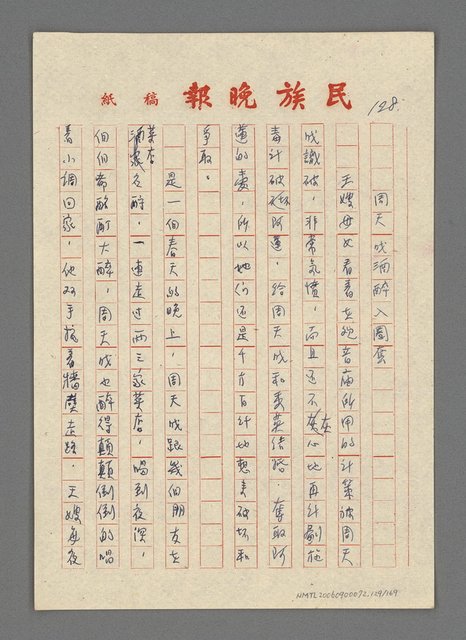 民族晚報稿紙
128.
周天成酒醉入圈套
王嫂母女看看在觀音廟所用的計策被周天
成識破，非常氣憤，而且還不灰心地再計劃施
毒計破壞阿蓮，給周天成和素菜結婚，奪取阿
蓮的妻，所以她们还是千方百計地想去破坏和
爭取。
是一個春天的晚上，周天成跟幾個朋友在
菜店酒菜久醉，一連走过兩三家菜店，喝到夜深，
個個都酩酊大醉，周天成也醉得顛顛倒倒的唱
着小調回家，他双手扶着牆壁走路，王嫂每夜
NMTL20060900072.129/169